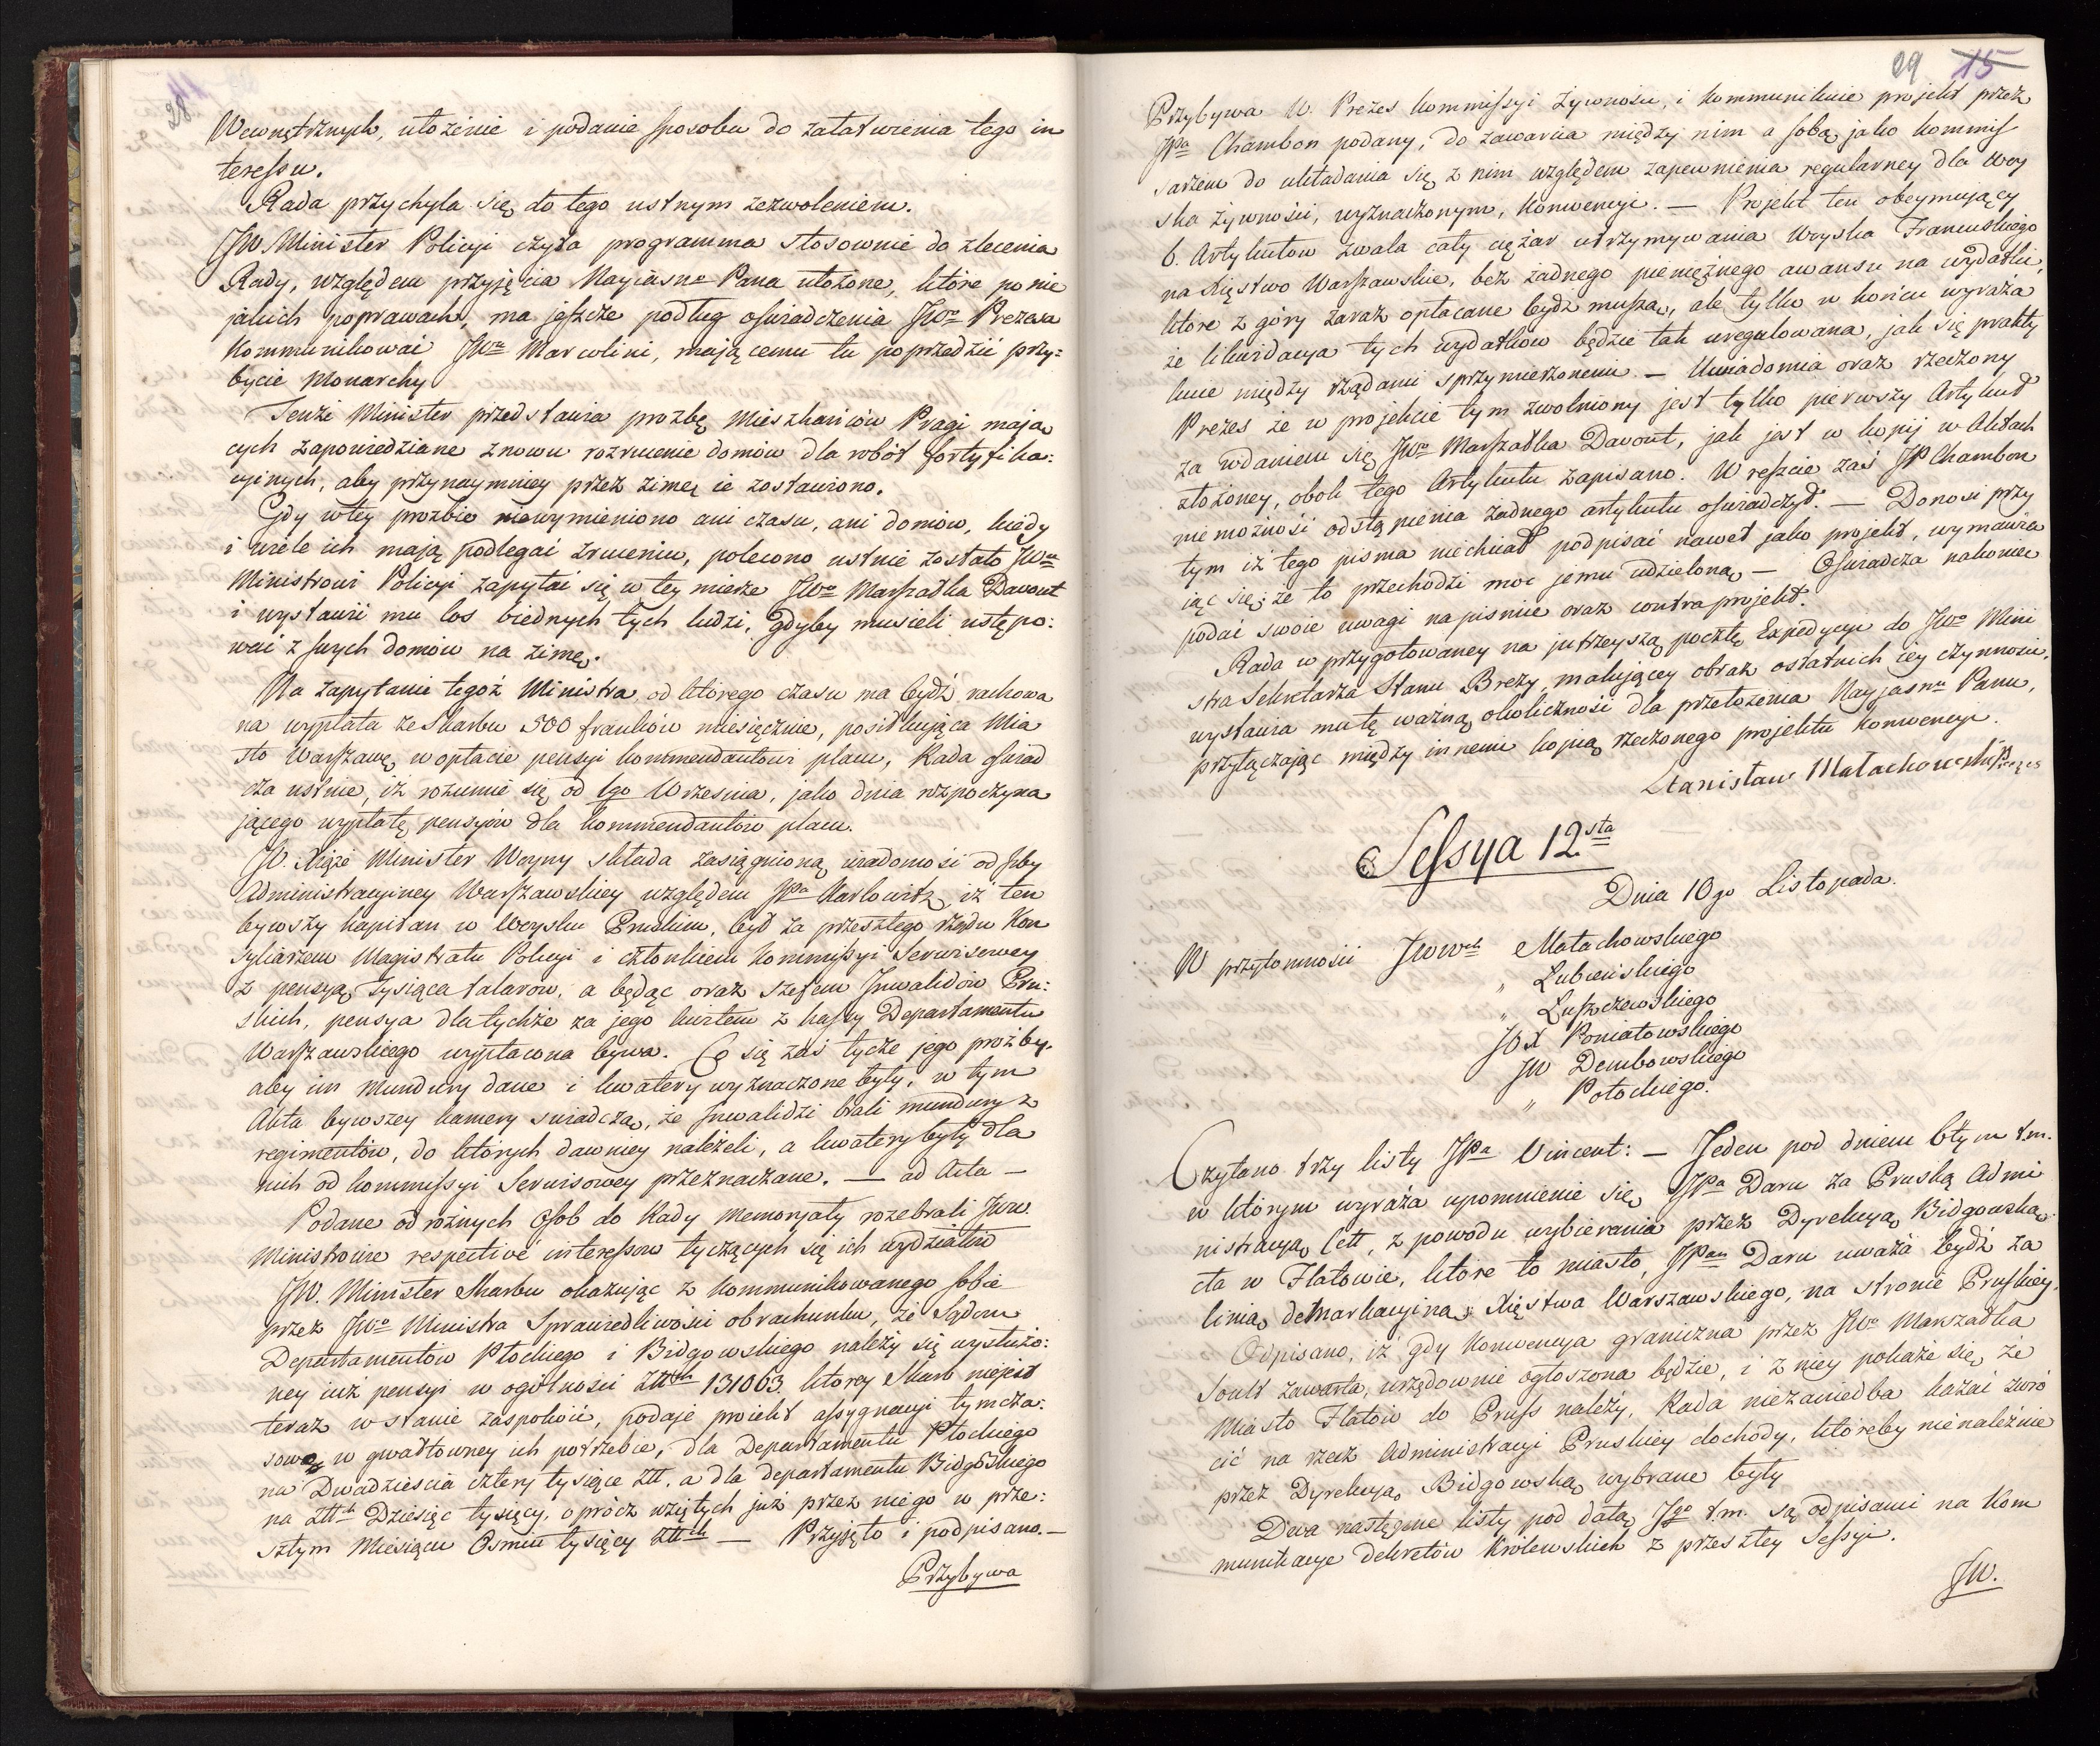 28
Wewnętrznych, ułożenie i podanie sposobu do załatwienia tego in
teressu.
Rada przychyla się do tego ustnym zezwoleniem.
JW. Minister Policyi czyta programma stosownie do zlecenia
Rady, względem przyjęcia Nayiaśno Pana ułożone, które po nie
jakich poprawach, ma jeszcze podług oświadczenia JWo Prezesa
Kommunikować JWmu Marcolini, mającemu tu poprzedzić przy:
bycie Monarchy
Tenże Minister przedstawia prożbę Mieszkańców Pragi mają
cych zapowiedziane znowu rozrucenie domów dla robót fortyfika:
cyinych, aby przynaymniey przez zimę ie zostawiono.
Gdy w tey prozbie niewymieniono ani czasu, ani domów, kiedy
i wiele ich mają podlegać zruceniu, polecono ustnie zostało JWmu
Ministrowi Policyi zapytać się w tey mierze JWo Marszałka Davout
i wystawić mu los biednych tych ludzi, gdyby musieli ustępo:
wać z swych domów na zimę.
Na zapytanie tegoż Ministra, od którego czasu ma bydź rachowa
na wypłata ze Skarbu 500 franków miesięcznie, posiłkująca Mia
sto Warszawę w opłacie pensyi kommendantowi placu, Rada oświad
cza ustnie, iż rozumie się od 1go Września, jako dnia rozpoczyna
jącego wypłatę pensyów dla kommendantów placu.
JO. Xiąże Minister Woyny składa zasiągnioną wiadomość od Izby
Administracyiney Warszawskiey względem JPa Karlowitz, iż ten
bywszy kapitan w Woysku Pruskim, był za przeszłego rządu Kon
syliarzem Magistratu Policyi i członkiem Kommissyi Serwisowey
z pensyą tysiąca talarów, a będąc oraz szefem Inwalidów Pru:
skich, pensya dla tychże za jego kwitem z kassy Departamentu
Warszawskiego wypłacona bywa. Co się zaś tycze jego prożby,
aby im mundury dane i kwatery wyznaczone były, w tym
Akta bywszey kamery świadczą, że Inwalidzi brali mundury z
regimentów, do których dawniey należeli, a kwatery były dla
nich od kommissyi Serwisowey przeznaczane. — ad Acta —
Podane od rożnych Osob do Rady Memoryały rozebrali JWW
Ministrowie respective interessow tyczących się ich wydziałów
JW. Minister Skarbu okazując z kommunikowanego sobie
przez JWo Ministra Sprawiedliwości obrachunku, że Sądom
Departamentów Płockiego i Bidgowskiego należy się wysłużo:
ney iuż pensyi w ogólności Złłch 131063, którey Skarb niejest
teraz w stanie zaspokoić, podaje proiekt assygnacyi tymcza:
sowey w gwałtowney ich potrzebie, dla Departamentu Płockiego
na Dwadzieścia cztery tysiące Złł. a dla departamentu Bidgoskiego
na Złłch Dziesięć tysięcy, oprócz wziętych już przez niego w prze:
szłym Miesiącu Ośmiu tysięcy Złłch — Przyjęto i podpisano. —
Przybywa
29 15
Przybywa W. Prezes kommissyi żywności, i kommunikuie projekt przez
JPa Chambon podany, do zawarcia między nim a sobą, jako kommis
sarzem do układania się z nim względem zapewnienia regularney dla Woy
ska żywności, wyznaczonym, konwencyi. — Projekt ten obeymujący
6. Artykułow zwala cały ciężar utrzymywania Woyska Francuskiego
na Xięstwo Warszawskie, bez żadnego pieniężnego awansu na wydatki,
które z góry zaraz opłacane bydź muszą, ale tylko w końcu wyraża
że likwidacya tych wydatkow będzie tak uregulowana, jak się prakty
kuie między rządami sprzymierzonemi. — Uwiadomia oraz rzeczony
Prezes że w projekcie tym zwolniony jest tylko pierwszy Artykuł
za wdaniem się JWo Marszałka Davout, jak jest w kopij w Aktach
złożoney, obok tego Artykułu zapisano. W reszcie zaś JP Chambon
niemożność odstąpienia żadnego artykułu oświadczył. — Donosi przy
tym iż tego pisma niechciał podpisać nawet jako projekt, wymawia
iąc się, że to przechodzi moc jemu udzieloną — Oświadcza nakoniec
podać swoie uwagi na piśmie oraz contraprojekt.
Rada w przygotowaney na jutrzeyszą pocztę Expedycyi do JWo Mini
stra Sekretarza Stanu Brezy, malującey obraz ostatnich iey czynności,
wystawia mu tę ważną okoliczność dla przełożenia Nayjasnmu Panu,
przyłączając między innemi kopią rzeczonego projektu konwencyi.
Stanisław Małachowski Prezes
Sessya 12sta
Dnia 10go Listopada.
W przytomności JWWch Małachowskiego
„ Łubieńskiego
„ Łuszczewskiego
JOX Poniatowskiego
JW Dembowskiego
„ Potockiego.
Czytano trzy listy JPa Vincent: — Jeden pod dniem 6tym t.m.
w którym wyraża upomnienie się JPa Daru za Pruską Admi
nistracyą Ceł, z powodu wybierania przez Dyrekcyą Bidgowską
cła w Flatowie, które to miasto, JPan Daru uważa bydź za
linią demarkacyiną Xięstwa Warszawskiego, na stronie Pruskiey.
Odpisano, iż gdy konwencya graniczna przez JWo Marszałka
Soult zawarta, urzędownie ogłoszona będzie, i z niey pokaże się, że
Miasto Flatow do Pruss należy, Rada niezaniedba kazać zwró
cić na rzecz Administracyi Pruskiey dochody, któreby nienależnie
przez Dyrekcyą Bidgowską wybrane były
Dwa następne listy pod datą 7go t.m. są odpisami na Kom
munikacye dekretów Królewskich z przeszłey Sessyi.
JW.